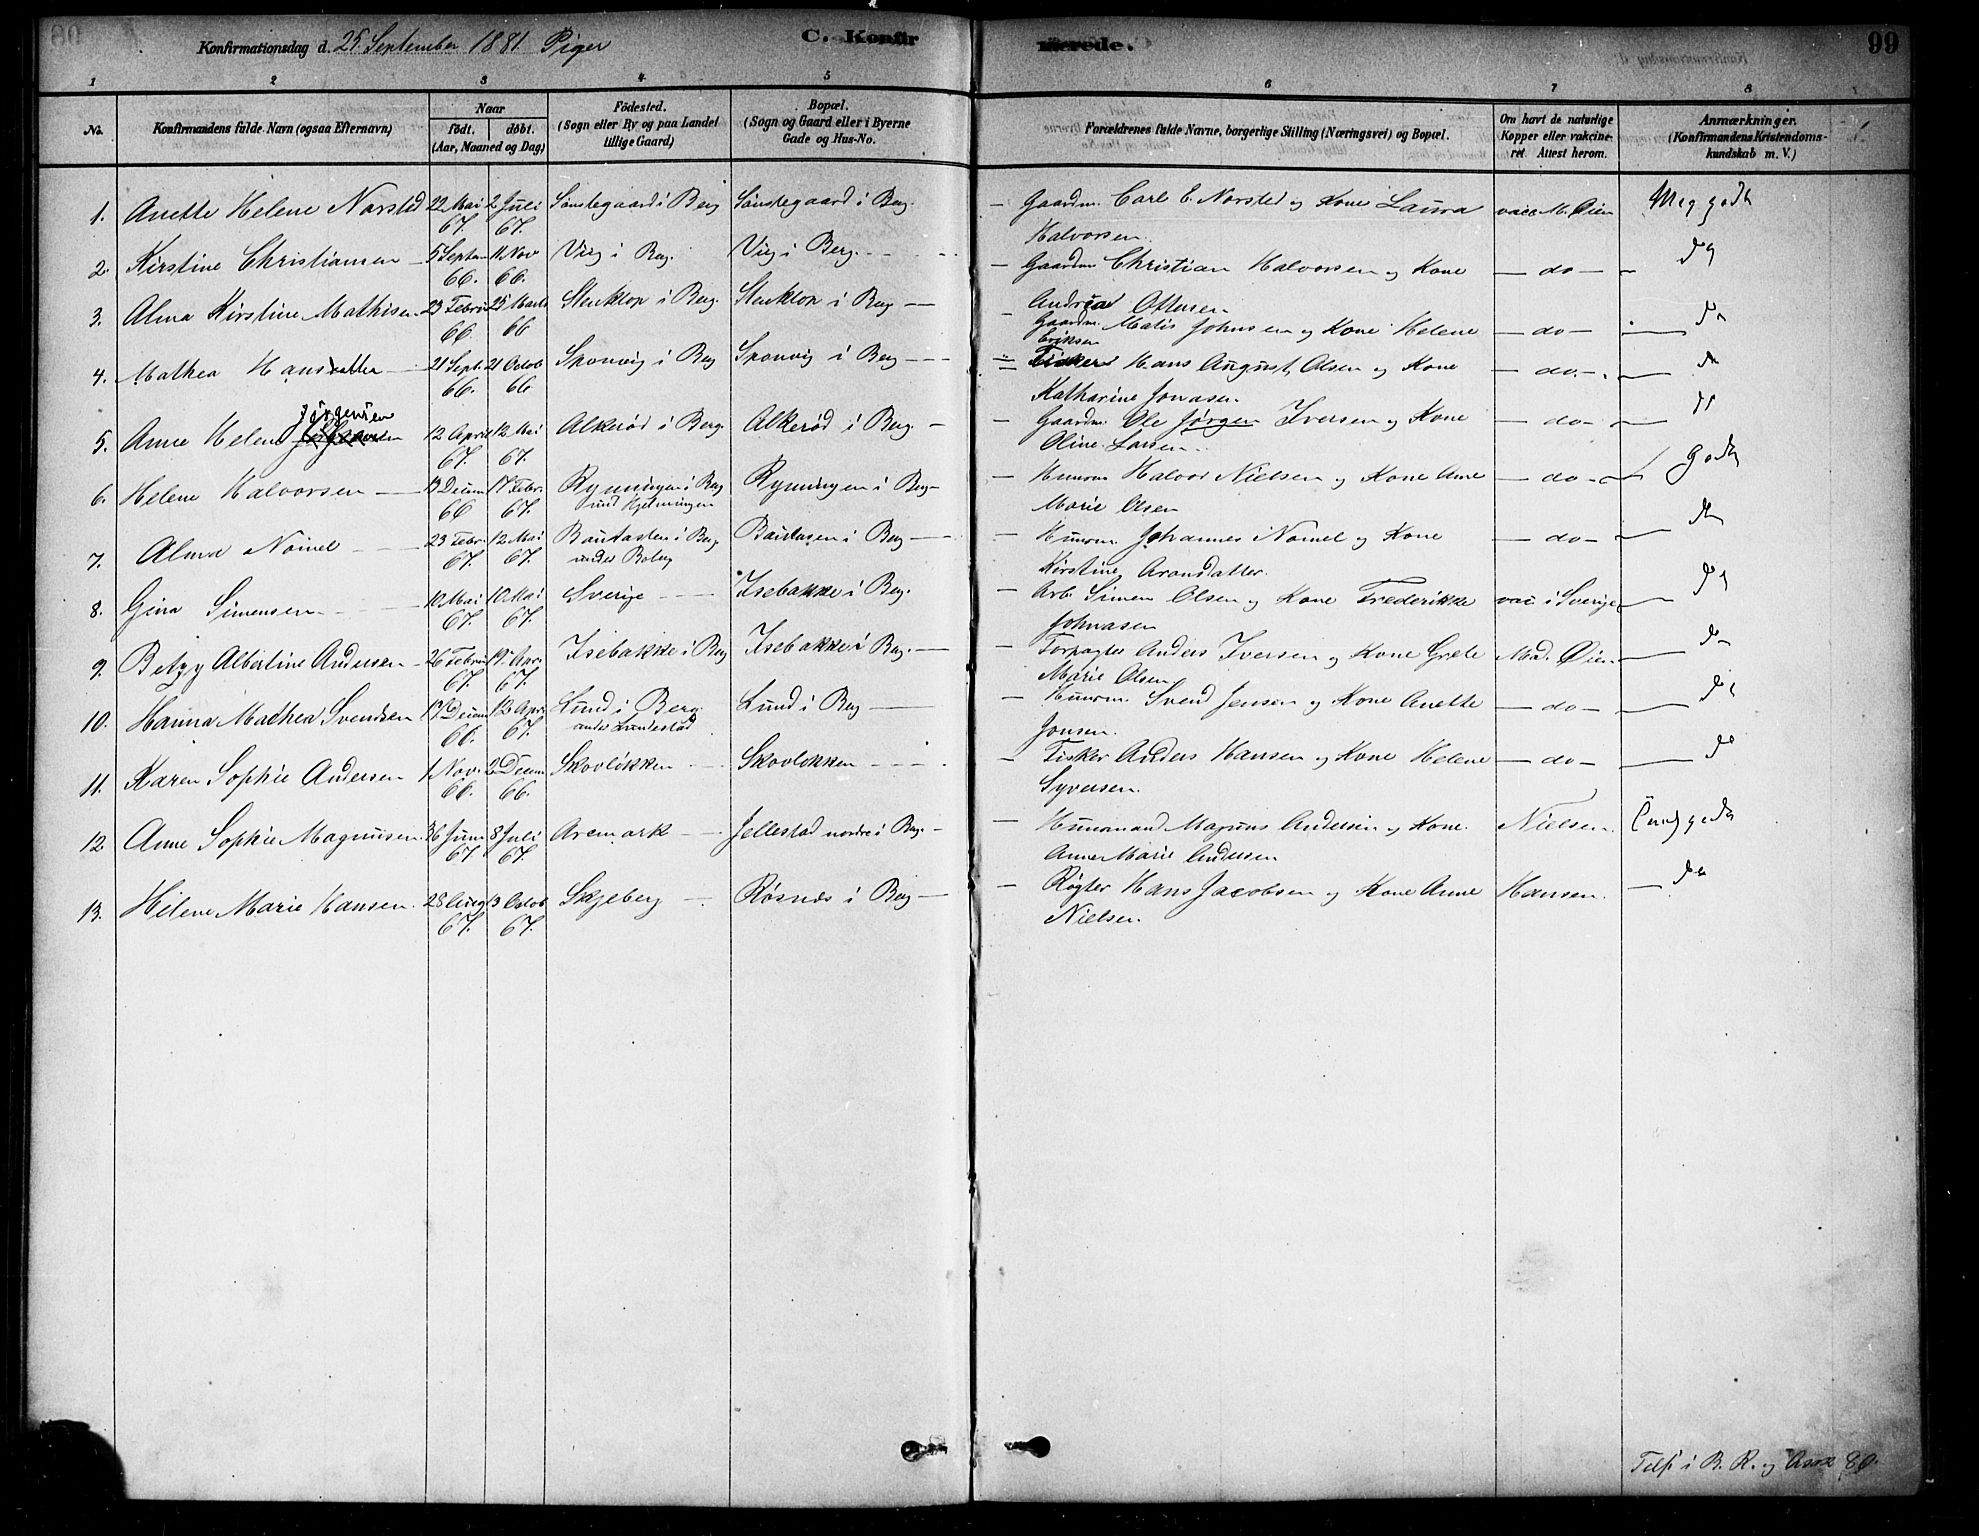 Konfirmationsdag d. 25. September 1881. Piger C. Konfirmerede. 99
1 2 3 4 5 6 7 8
No. Konfirmandens fulde Navn (ogsaa Efternavn) Naar født. døbt. (Aar, Maaned og Dag) Fødested. (Sogn eller By og paa Landet tillige Gaard) Bopæl. (Sogn og Gaard eller i Byerne Gade og Hus-No. Forældrenes fulde Navne, borgerlige Stilling (Næringsvei) og Bopæl. Om havt de naturlige Kopper eller vakcineret. Attest herom. Anmærkninger. (Konfirmandens Kristendomskundskab m. V.)
1. Anette Helene Norsted 22 Mai 67. 2 Juli 67. Sønstegaard i Berg Sønstegaard i Berg. — Gaardm. Carl E. Norsted og Kone Laura Halvorsen. vacc M. Øien Meg godt
2. Kirstine Christiansen 5 Septem 66. 11 Nov 66. Viig i Berg. Viig i Berg. — Gaardm Christian Halvorsen og Kone Andrea Ottersen — do —
3. Alma Kirstine Mathisen 23 Februar 66. 25 Marts 66 Stenklop i Berg. Stenklop i Berg — Gaardm. Matis Johnsen og Kone Helene Eriksen — do —
4. Mathea Hansdatter 21 Sept. 66. 21 Octob 66. Sponvig i Berg Sponvig i Berg — Fisker Hans August Olsen og Kone Katharine Jonasen. — do. —
5. Anne Helene Jørgensen 12 April 67. 12 Mai 67. Alkerød i Berg. Alkerød i Berg. — Gaardm. Ole Jørgen Iversen og Kone Oline Larsen. — do —
6. Helene Halvorsen 13 Decem 66 17 Febr. 67. Rynningen i Berg und Hjelmungen Rynningen i Berg — Husm Halvor Nielsen og Kone Anne Marie Olsen — do — Godt
7. Alma Nomel 23 Febr. 67. 12 Mai 67. Bautasten i Berg under Boberg Bautasen i Berg — Husm. Johannes Nomel og Kone Kirstine Aronsdatter. — do —
8. Gina Simensen 10 Mai 67. 10 Mai 67. Sverige Isebakke i Berg. — Arb. Simen Olsen og Kone Frederikke Johnasen vac i Sverige
9. Betzy Albertine Andersen 26 Februar 67. 19 Apr. 67. Isebakke i Berg Isebakke i Berg. — Forpagter Anders Iversen og Kone Grete Marie Olsen. Mad. Øien
10. Hanna Mathea Svendsen 17 Decem 66. 12 Apr. 67. Lund i Berg. under Lundestad Lund i Berg — Husm. Svend Jensen og Kone Anette Jonsen. — do —
11. Karen Sophie Andersen 1 Nov. 66. 2 Decem 66. Skovløkken Skovløkken — Fisker Anders Hansen og Kone Helene Syversen. — do —
12 Anne Sophie Magnusen Juni 67. 8 Juli 67. Aremark Jellestad nordre i Berg. — Husmand Magnus Andersen og Kone Anne Marie Andersen Nielsen.
13. Helene Marie Hansen. 28 Aug 67. 13 Octob 67. Skjeberg Røsnes i Berg — Røgter Hans Jacobsen og Kone Anne Nielsen. Hansen.